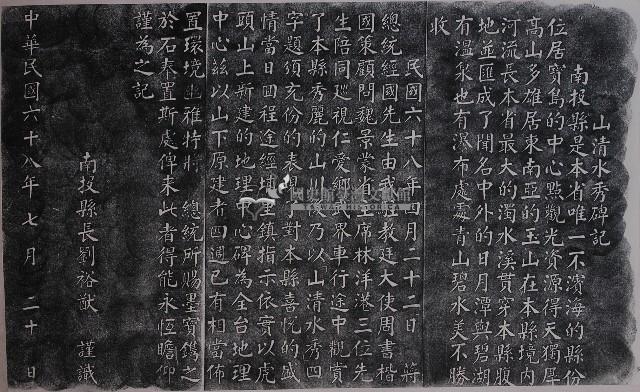 山清水秀碑記
南投縣是本省唯一不濱海的縣份
位居寶島的中心點觀光資源得天獨厚
高山多雄居東南亞的玉山在本縣境內
河流長本省最大的濁水溪貫穿本縣腹
地並匯成了聞名中外的日月潭與碧湖
有溫泉也有瀑布處處青山碧水美不勝
收
民國六十八年四月二十二日 蔣
總統經國先生由我駐教廷大使周書楷
國策顧問魏景蒙省主席林洋港三位先
生陪同巡視仁愛鄉武界車行途中觀賞
了本縣秀麗的山川後乃以山清水秀四
字題須充份的表 了對本縣喜悅的盛
情當日回程途經埔里鎮指示依實以虎
頭山上新建的地理中心碑為全台地理
中心茲以山下原建者四週已有相當佈
置環境幽雅特將 總統所賜墨寶鐫之
於石奉置斯處俾來此者得能永恆瞻仰
謹為之記
南投縣長劉裕猷 謹識
中華民國六十八年七月二十日